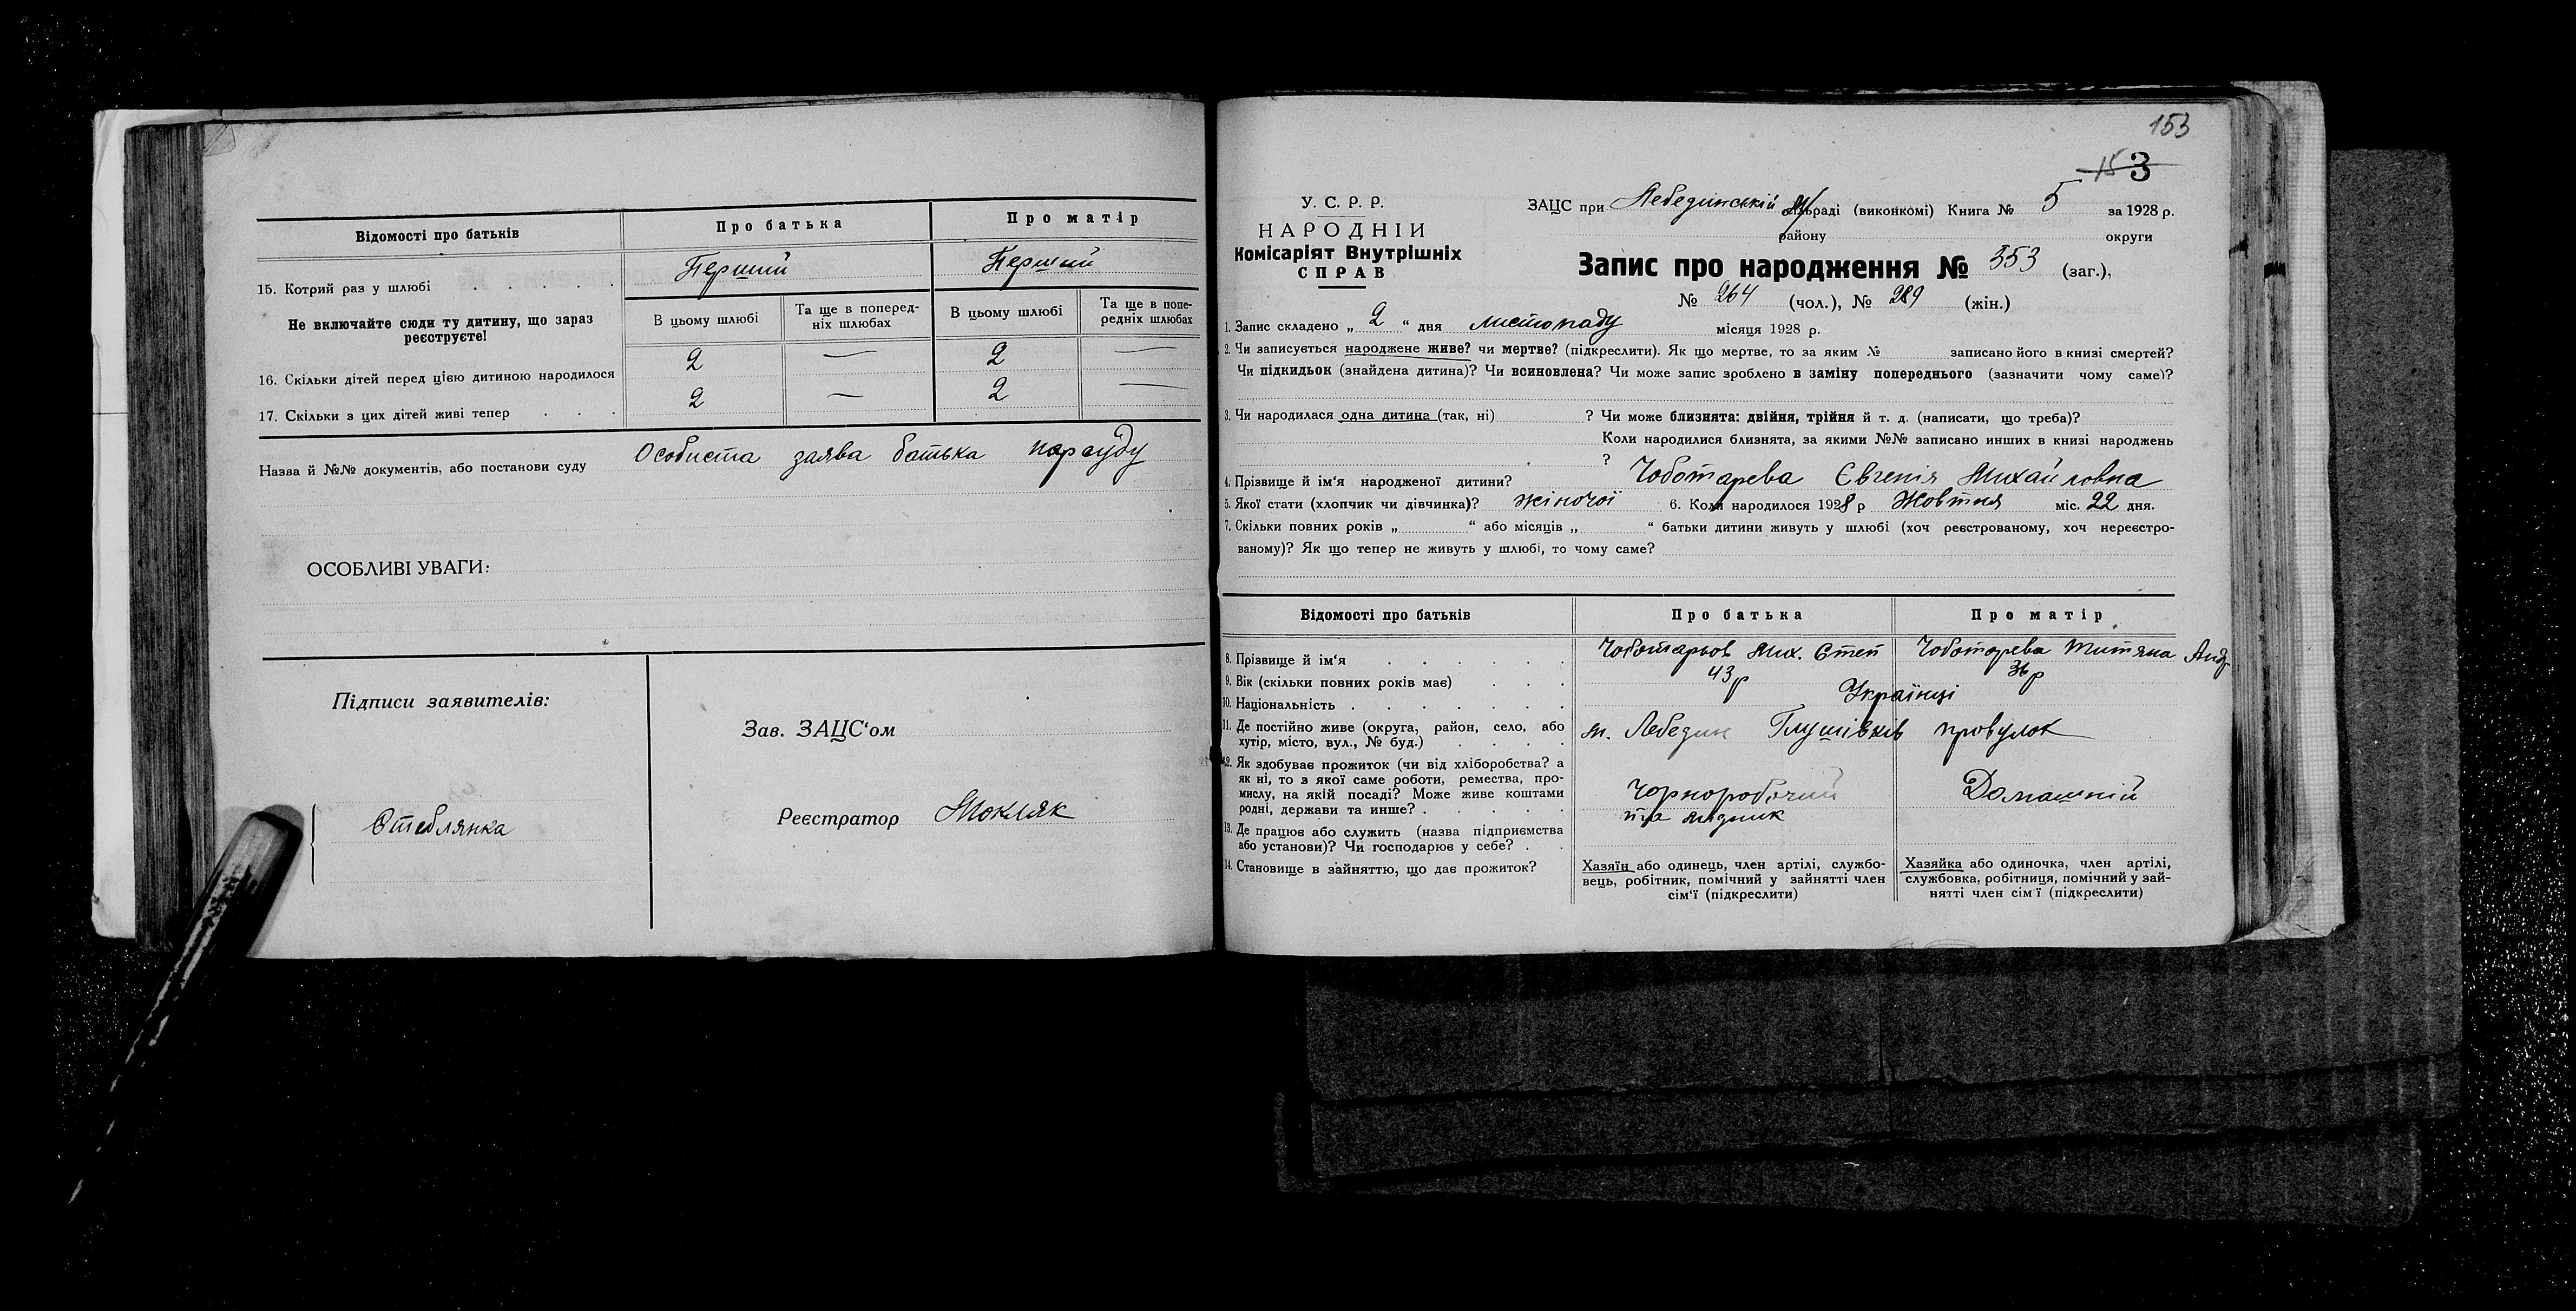 Відомості про батьків
Про батька
Про матір
15. Котрий раз у шлюбі
Перший
Перший
Не включайте сюди ту дитину, що зараз реєструєте!
В цьому шлюбі
Та ще в поперед-
ніх шлюбах
В цьому шлюбі
Та ще в попе-
редніх шлюбах
16. Скільки дітей перед цією дитиною народилося
2
—
2
—
17. Скільки з цих дітей живі тепер
2
—
2
—
Назва й №№ документів, або постанови суду Особиста заява батька
ОСОБЛИВІ УВАГИ:
Підписи заявителів:
Стеблянка
Зав. ЗАЦС'ом
Реєстратор Мокляк
153
153
У. С. Р. Р.
НАРОДНІЙ
Комісаріят Внутрішніх
СПРАВ
ЗАЦС при Лебединській м/сільраді (виконкомі) Книга № 5 за 1928 р.
району округи
Запис про народження № 553 (заг.),
№ 264 (чол.), № 289 (жін.)
1. Запис складено „ 2 “ дня листопаду місяця 1928 р.
2. Чи записується народжене живе? чи мертве? (підкреслити). Як що мертве, то за яким № записано його в книзі смертей?
Чи підкидьок (знайдена дитина)? Чи всиновлена? Чи може запис зроблено в заміну попереднього (зазначити чому саме)?
3. Чи народилася одна дитина (так, ні) ? Чи може близнята: двійня, трійня й т. д. (написати, що треба)?
Коли народилися близнята, за якими №№ записано инших в книзі народжень
?
4. Прізвище й ім'я народженої дитини? Чоботарева Євгенія Михайловна
5. Якої стати (хлопчик чи дівчинка)? жіночої 6. Коли народилося 1928 р Жовтня міс. 22 дня.
7. Скільки повних років „ “ або місяців „ “ батьки дитини живуть у шлюбі (хоч реєстрованому, хоч нереєстро-
ваному)? Як що тепер не живуть у шлюбі, то чому саме?
Відомості про батьків
Про батька
Про матір
8. Прізвище й ім'я
Чоботарьов Мих. Степ
Чоботарева Титяна Анд
9. Вік (скільки повних років має)
43 р
36 р
10. Національність
Українці
11. Де постійно живе (округа, район, село, або
хутір, місто, вул., № буд.)
м. Лебедин Глушівків провулок
12. Як здобуває прожиток (чи від хліборобства? а
як ні, то з якої саме роботи, ремества, про-
мислу, на якій посаді? Може живе коштами
родні, держави та инше?
Чорноробочий
Домашній
13. Де працює або служить (назва підприємства
або установи)? Чи господарює у себе?
14. Становище в зайняттю, що дає прожиток?
Хазяїн або одинець, член артілі, службо-
вець, робітник, помічний у зайнятті член
сім'ї (підкреслити)
Хазяйка або одиночка, член артілі,
службовка, робітниця, помічний у зай-
нятті член сім'ї (підкреслити)